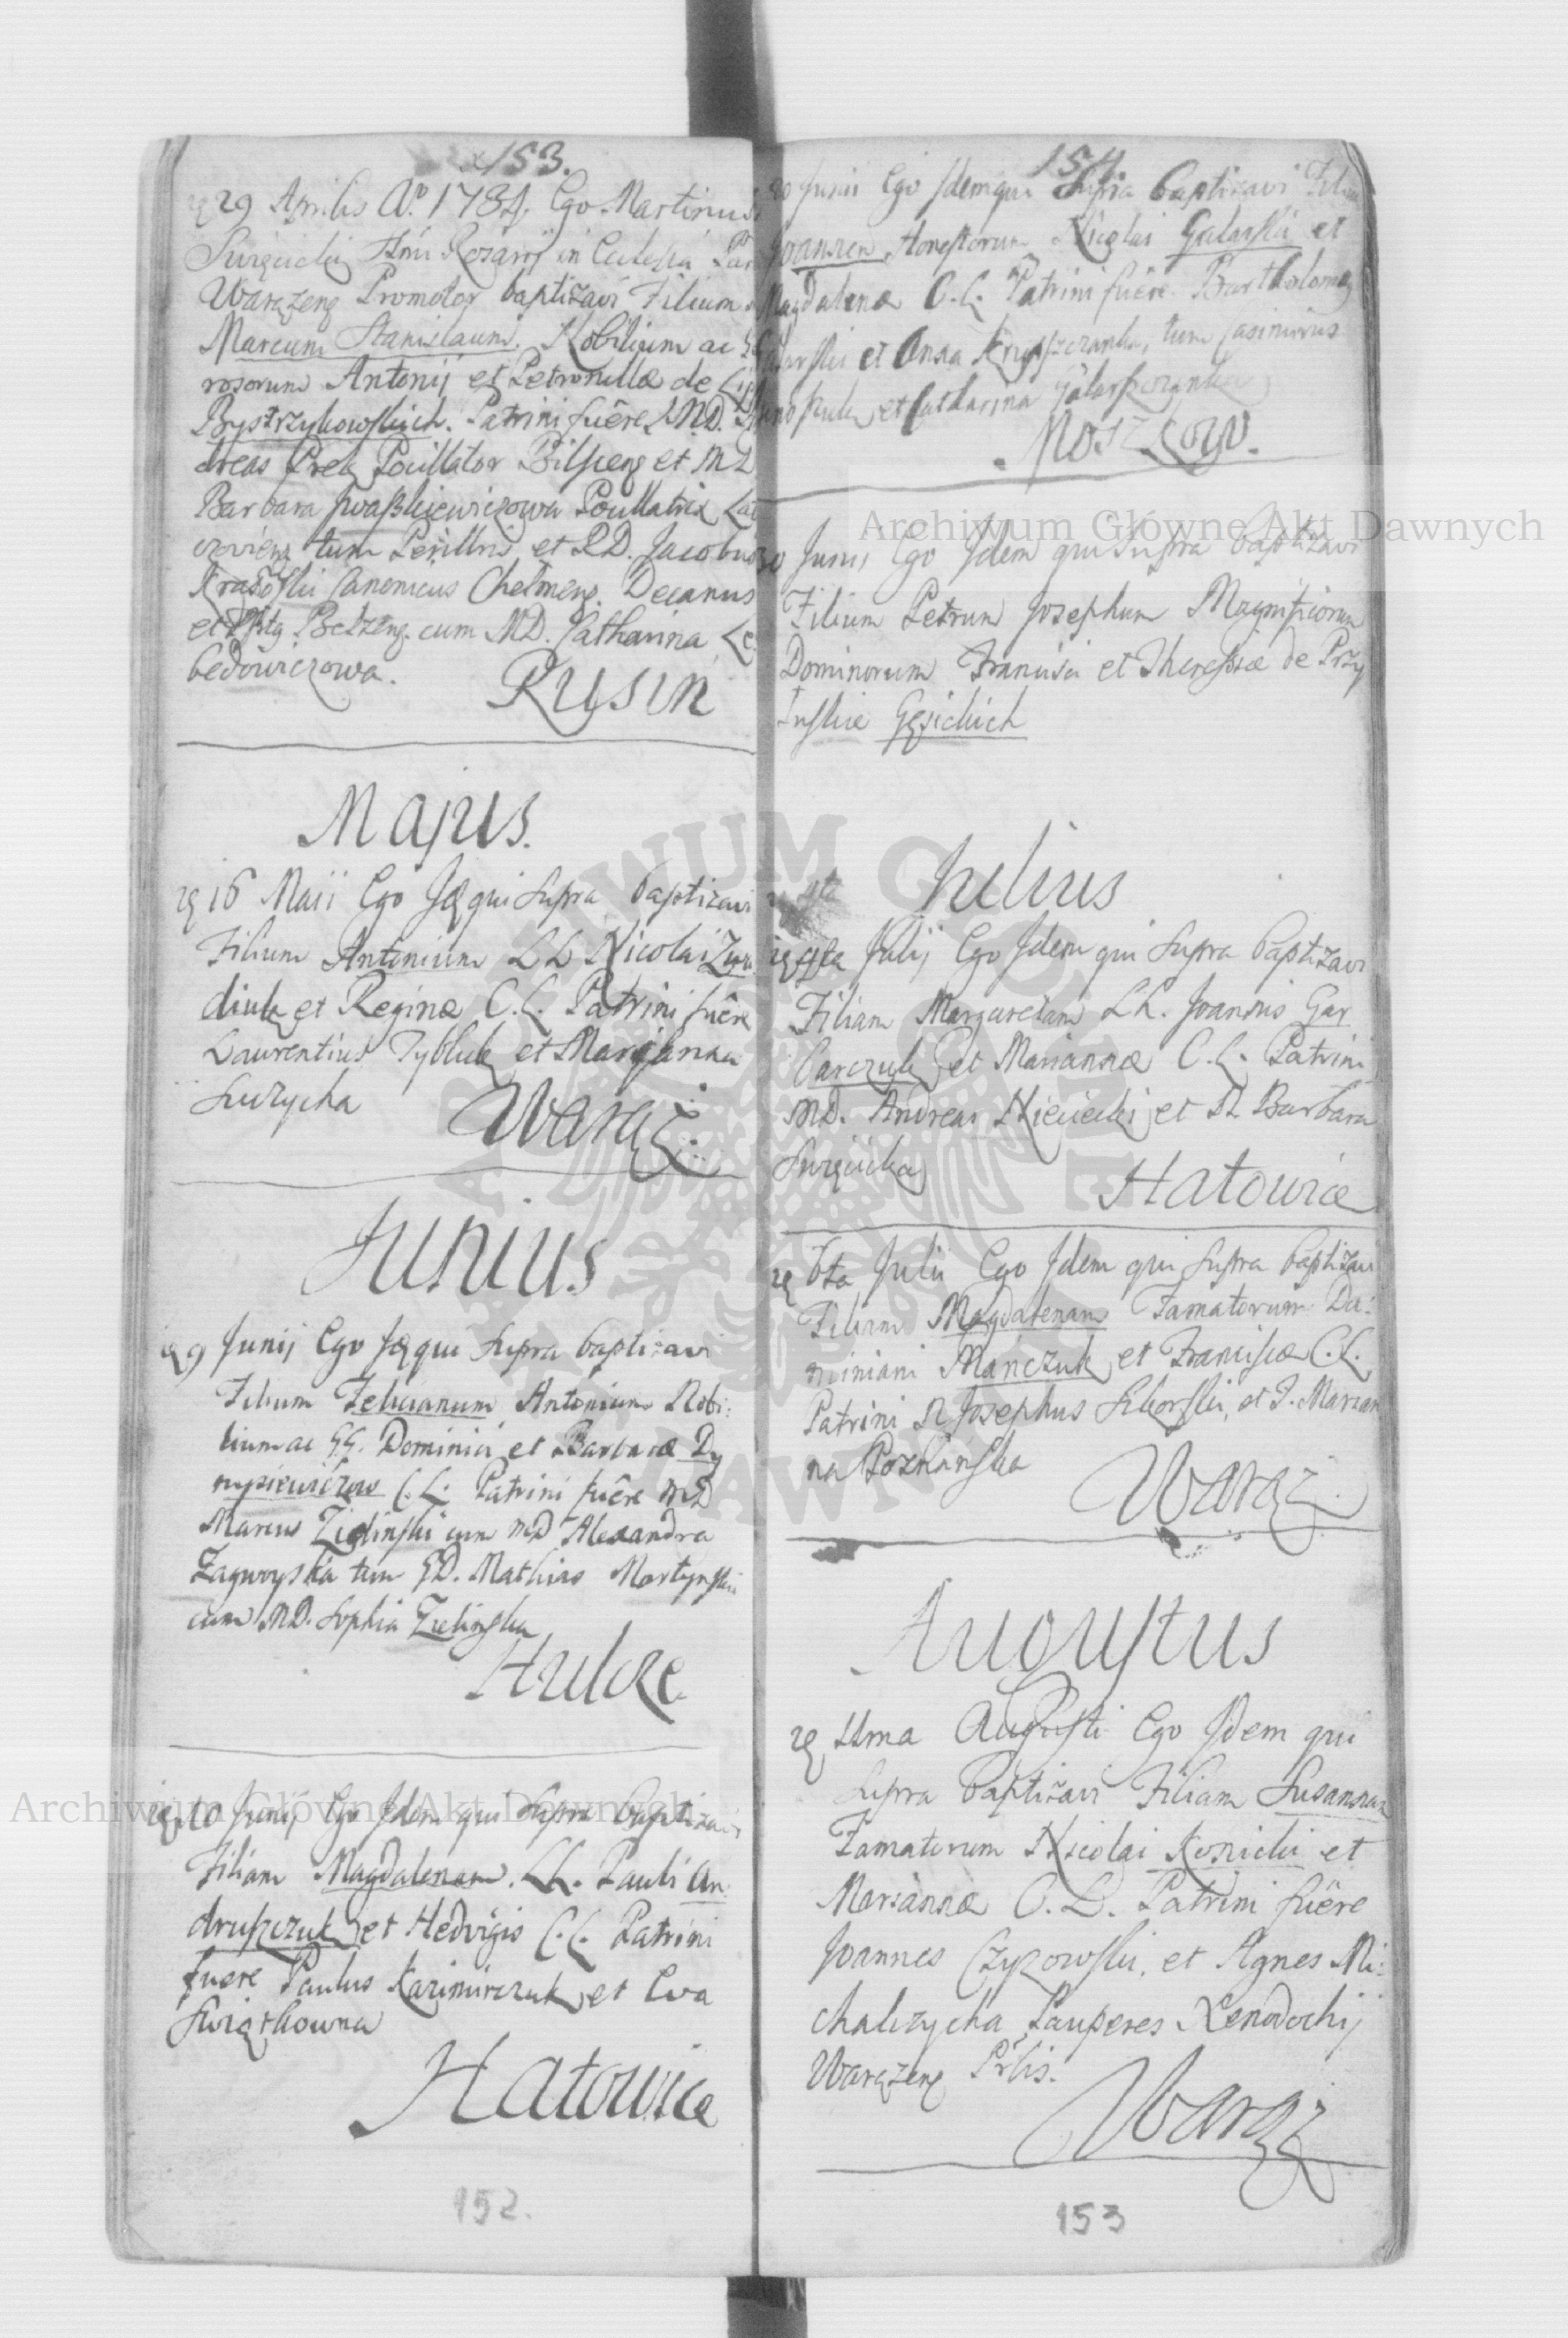 153.
29 Aprilis A° 1784. Ego Martinus
Surgicki Ssmi Rosarij in Ecclesia Par
Warązeng Promotor baptizavi Filium
Marcum Stanislaum. Nobilium ac
rosorum Antonij et Petronillæ de
Bystrzykowskich. Patrini fuêre MD.
dreas Prek Pocillator Bilscens et M
Barbara Iwaszkiewiczowa Pocillatrix
tum Perillris et RD. Jacobus
Canonicus Chelmens. Decanus
et Belzens. cum MD. Catharina Le
bedowiczowa.
Rusin
Majus.
16 Maii Ego qui supra baptizavi
Filium Antonium LL Nicolai
diuk et Reginæ C. L. Patrini fuêre
Laurentius Tybluk et Marianna
Suzycha
Warąż.
Junius
9 Junij Ego qui supra baptizavi
Filium Felicianum Antonium Nobi:
lium ac GG. Dominici et Barbaræ Dy
nysiewiczow C. L. Patrini fuêre MD
Marcus Zielinski cum MD Alexandra
Zagwoyska tum GD. Mathias Martynski
cum MD. Sophia Zielinska
Hulcze
10 Junij Ego Idem qui supra baptizavi
Filiam Magdalenam. LL. Pauli An
druszczuk et Hedvigis C. L. Patrini
fuere Paulus Kazimirczuk et Eva
Swiątkowna
Hatowice
152.
154.
20 Junii Ego Idem qui supra baptizavi Filium
Joannem Honestorum Nicolai Galarski et
Magdalenæ C. L. Patrini fuêre Bartholomeus
et Anna tum Casimirus
et Catharina
Moszczow.
Archiwum Główne Akt Dawnych
Junii Ego Idem qui supra baptizavi
Filium Petrum Josephum Magnificorum
Dominorum Francisci et Theressiæ de Przy
łuskie Gęsickich
Julius
4ta Julij Ego Idem qui supra baptizavi
Filiam Margaretam LL. Joannis Gar
barczuk et Mariannæ C. L. Patrini
MD. Andreas Niciecki et N Barbara
Surgicka
Hatowice
6ta Julii Ego Idem qui supra baptizavi
Filiam Magdalenam Famatorum Da:
miniani Manczuk et Franciscæ C. L.
Patrini N Josephus Sikorski, et F. Marian
na Poznanska
Warąż.
Augustus
1ma Augusti Ego Idem qui
supra baptizavi Filiam Susannam
Famatorum Nicolai Konicki et
Mariannæ C. L. Patrini fuêre
Joannes Czyzowski, et Agnes Mi:
chalczycha Pauperes Xenodochij
Warązens Prlis.
Warąż
153
Archiwum Główne Akt Dawnych
ARCHIWUM GŁÓWNE AKT DAWNYCH